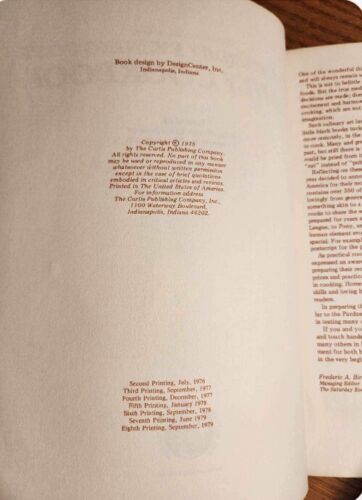 Book design by DesignCenter, Inc.
Indianapolis, Indiana
Copyright © 1975
by The Curtis Publishing Company.
All rights reserved. No part of this book
may be used or reproduced in any manner
whatsoever without written permission
except in the case of brief quotations
embodied in critical articles and reviews.
Printed in The United States of America.
For information address
The Curtis Publishing Company, Inc.,
1100 Waterway Boulevard,
Indianapolis, Indiana 46202.
Second Printing, July, 1976
Third Printing, September, 1977
Fourth Printing, December, 1977
Fifth Printing, January 1978
Sixth Printing, September, 1978
Seventh Printing, June 1979
Eighth Printing, September, 1979
One of the wonderful
and will always remain
This is not to belittle
foods. But the true
decisions are made;
excitement and
cooking, which are not
imagination.
Such culinary art
little black books to
more remotely, in the
to cook. Many and
past, but still there is
could be pried from
"no" instead of
Reflecting on
year decided to
America for their
contains over 350 of
lovingly from
something skin to a
cooks to share the
prepared for years
League, to Pony, and
human element
special. For example
postscript for the
As practical
expressed an
preparing their
prices and
in cooking. Home
skills and loving
readers.
In preparing
lar to the Purdue
in testing many
If you and
and touch
many others in
ment for both
in the very
Frederic A.
Managing Editor
The Saturday